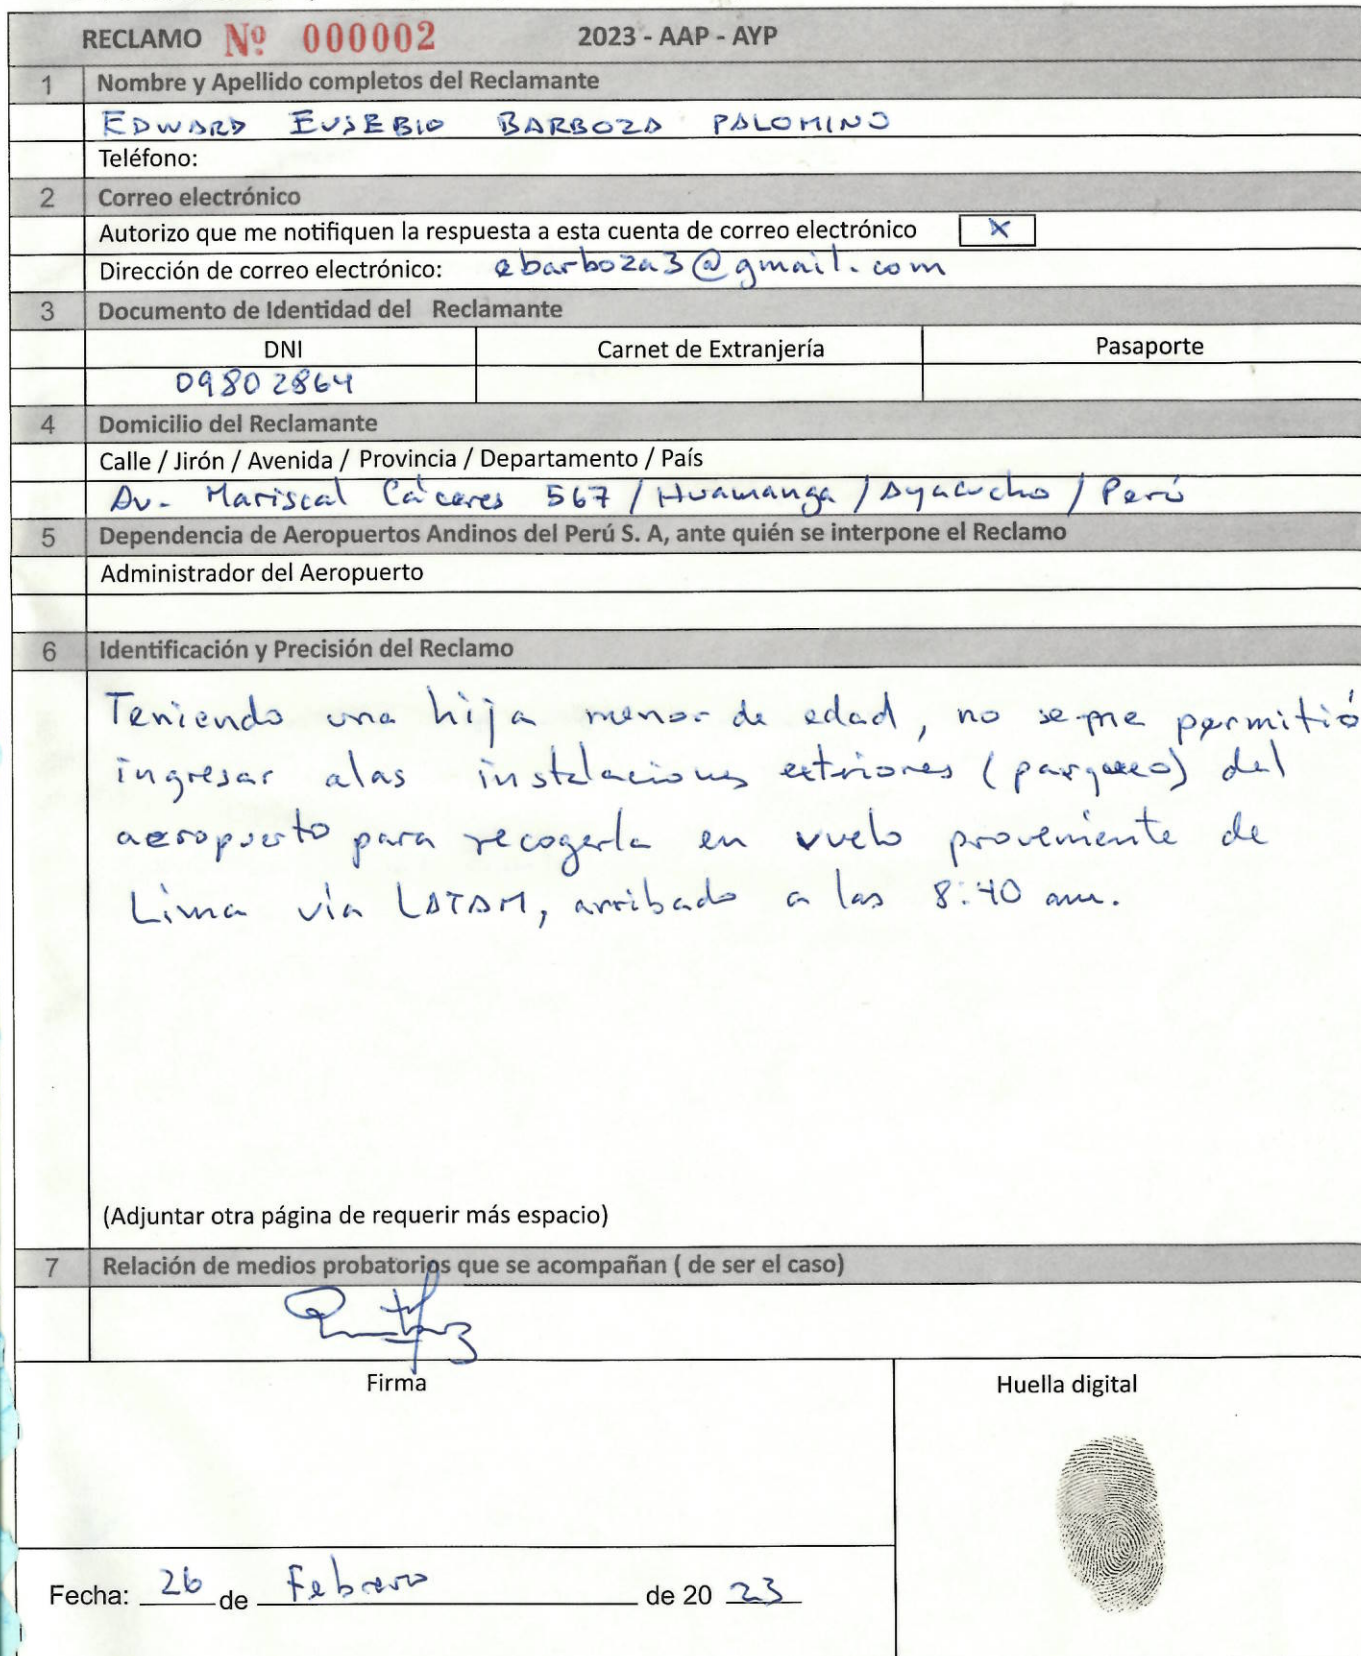 RECLAMO Nº 000002 2023 - AAP - AYP
1 Nombre y Apellido completos del Reclamante
EDWARD EUSEBIO BARBOZA PALOMINO
Teléfono:
2 Correo electrónico
Autorizo que me notifiquen la respuesta a esta cuenta de correo electrónico X
Dirección de correo electrónico: ebarboza3@gmail.com
3 Documento de Identidad del Reclamante
DNI Carnet de Extranjería Pasaporte
09802864
4 Domicilio del Reclamante
Calle / Jirón / Avenida / Provincia / Departamento / País
Av. Mariscal Cáceres 567 / Huamanga / Ayacucho / Perú
5 Dependencia de Aeropuertos Andinos del Perú S. A, ante quién se interpone el Reclamo
Administrador del Aeropuerto
6 Identificación y Precisión del Reclamo
Teniendo una hija menor de edad, no se me permitió
ingresar a las instalaciones exteriores (parqueo) del
aeropuerto para recogerla en vuelo proveniente de
Lima vía LATAM, arribado a las 8:40 am.
(Adjuntar otra página de requerir más espacio)
7 Relación de medios probatorios que se acompañan ( de ser el caso)
Firma Huella digital
Fecha: 26 de Febrero de 20 23